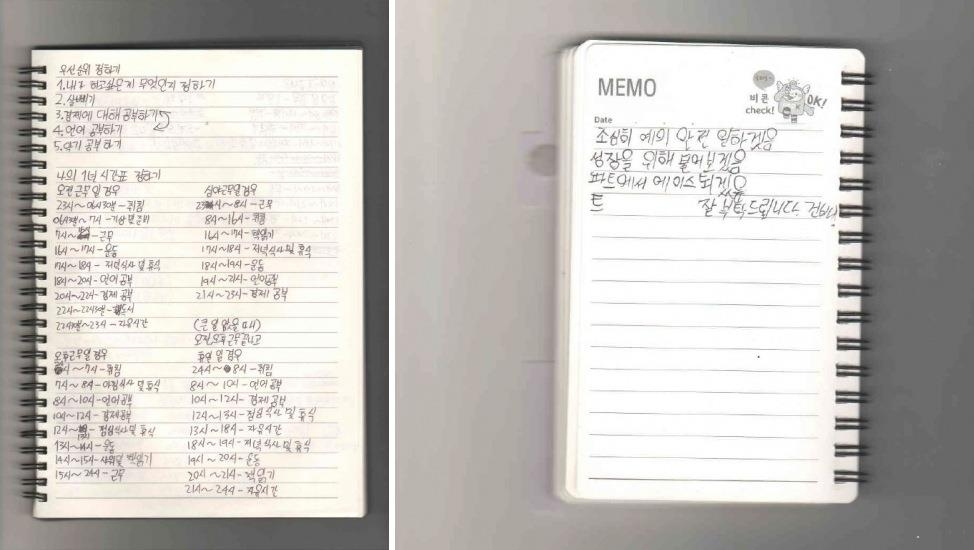 우선순위 정하기
1. 내가 하고싶은게 무엇인지 정하기
2. 살빼기
3. 경제에 대해 공부하기
4. 언어 공부하기
5. 공부하기
나의 1년 시간표 정하기
오전근무일 경우
23시~06시30분 - 취침
06시30분~7시 - 기상 및 준비
7시~ - 근무
16시~17시 - 운동
17시~18시 - 저녁식사 및 휴식
18시~20시 - 언어 공부
20시~22시 - 경제 공부
22시~22시30분 - 독서
22시30분~23시 - 자유시간
심야근무일경우
23시~8시 - 근무
8시~16시 - 취침
16시~17시 - 책읽기
17시~18시 - 저녁식사 및 휴식
18시~19시 - 운동
19시~21시 - 언어공부
21시~23시 - 경제 공부
(큰 일 없을 때)
오전오후근무끝나고
오후근무일 경우
~7시 - 취침
7시~8시 - 아침식사 및 휴식
8시~10시 - 언어공부
10시~12시 - 경제공부
12시~ - 점심식사 및 휴식
13시~14시 - 운동
14시~15시 - 샤워 및 책읽기
15시~24시 - 근무
휴일 일 경우
24시~8시 - 취침
8시~10시 - 언어공부
10시~12시 - 경제 공부
12시~13시 - 점심식사 및 휴식
13시~18시 - 자유시간
18시~19시 - 저녁식사 및 휴식
19시~20시 - 운동
20시~21시 - 책읽기
21시~24시 - 자유시간
MEMO
비콘
check!
OK!
Date
조심히 예의 안 일하겠음
성장을 위해 겠음
파트에서 에이스되겠음
잘 부탁드립니다